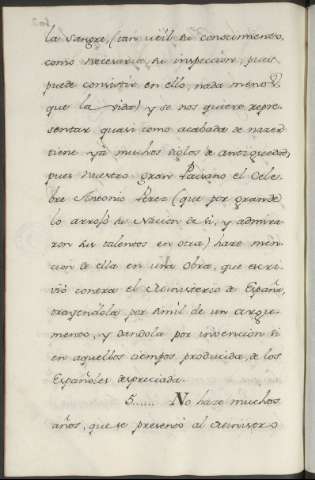 la sangre, (tan util su conocimiento,
como necesaria su inspeccion, pues
puede consistir en ello, nada menos
que la vida) y se nos quiere repre-
sentar quasi como acabada de nazer
tiene ya muchos siglos de antiguedad,
pues nuestro gran Paisano el Cele-
bre Antonio Perez (que por grande
lo arrojo su Nacion de si, y admira-
ron sus talentos en otra) hace men-
cion de ella en una obra, que escri-
vió contra el Ministerio de España,
trayendola por simil de un argu-
mento, y dandola por invencion si
en aquellos tiempos producida, de los
Españoles despreciada.
5...... No hace muchos
años, que se presentó al Ministerio